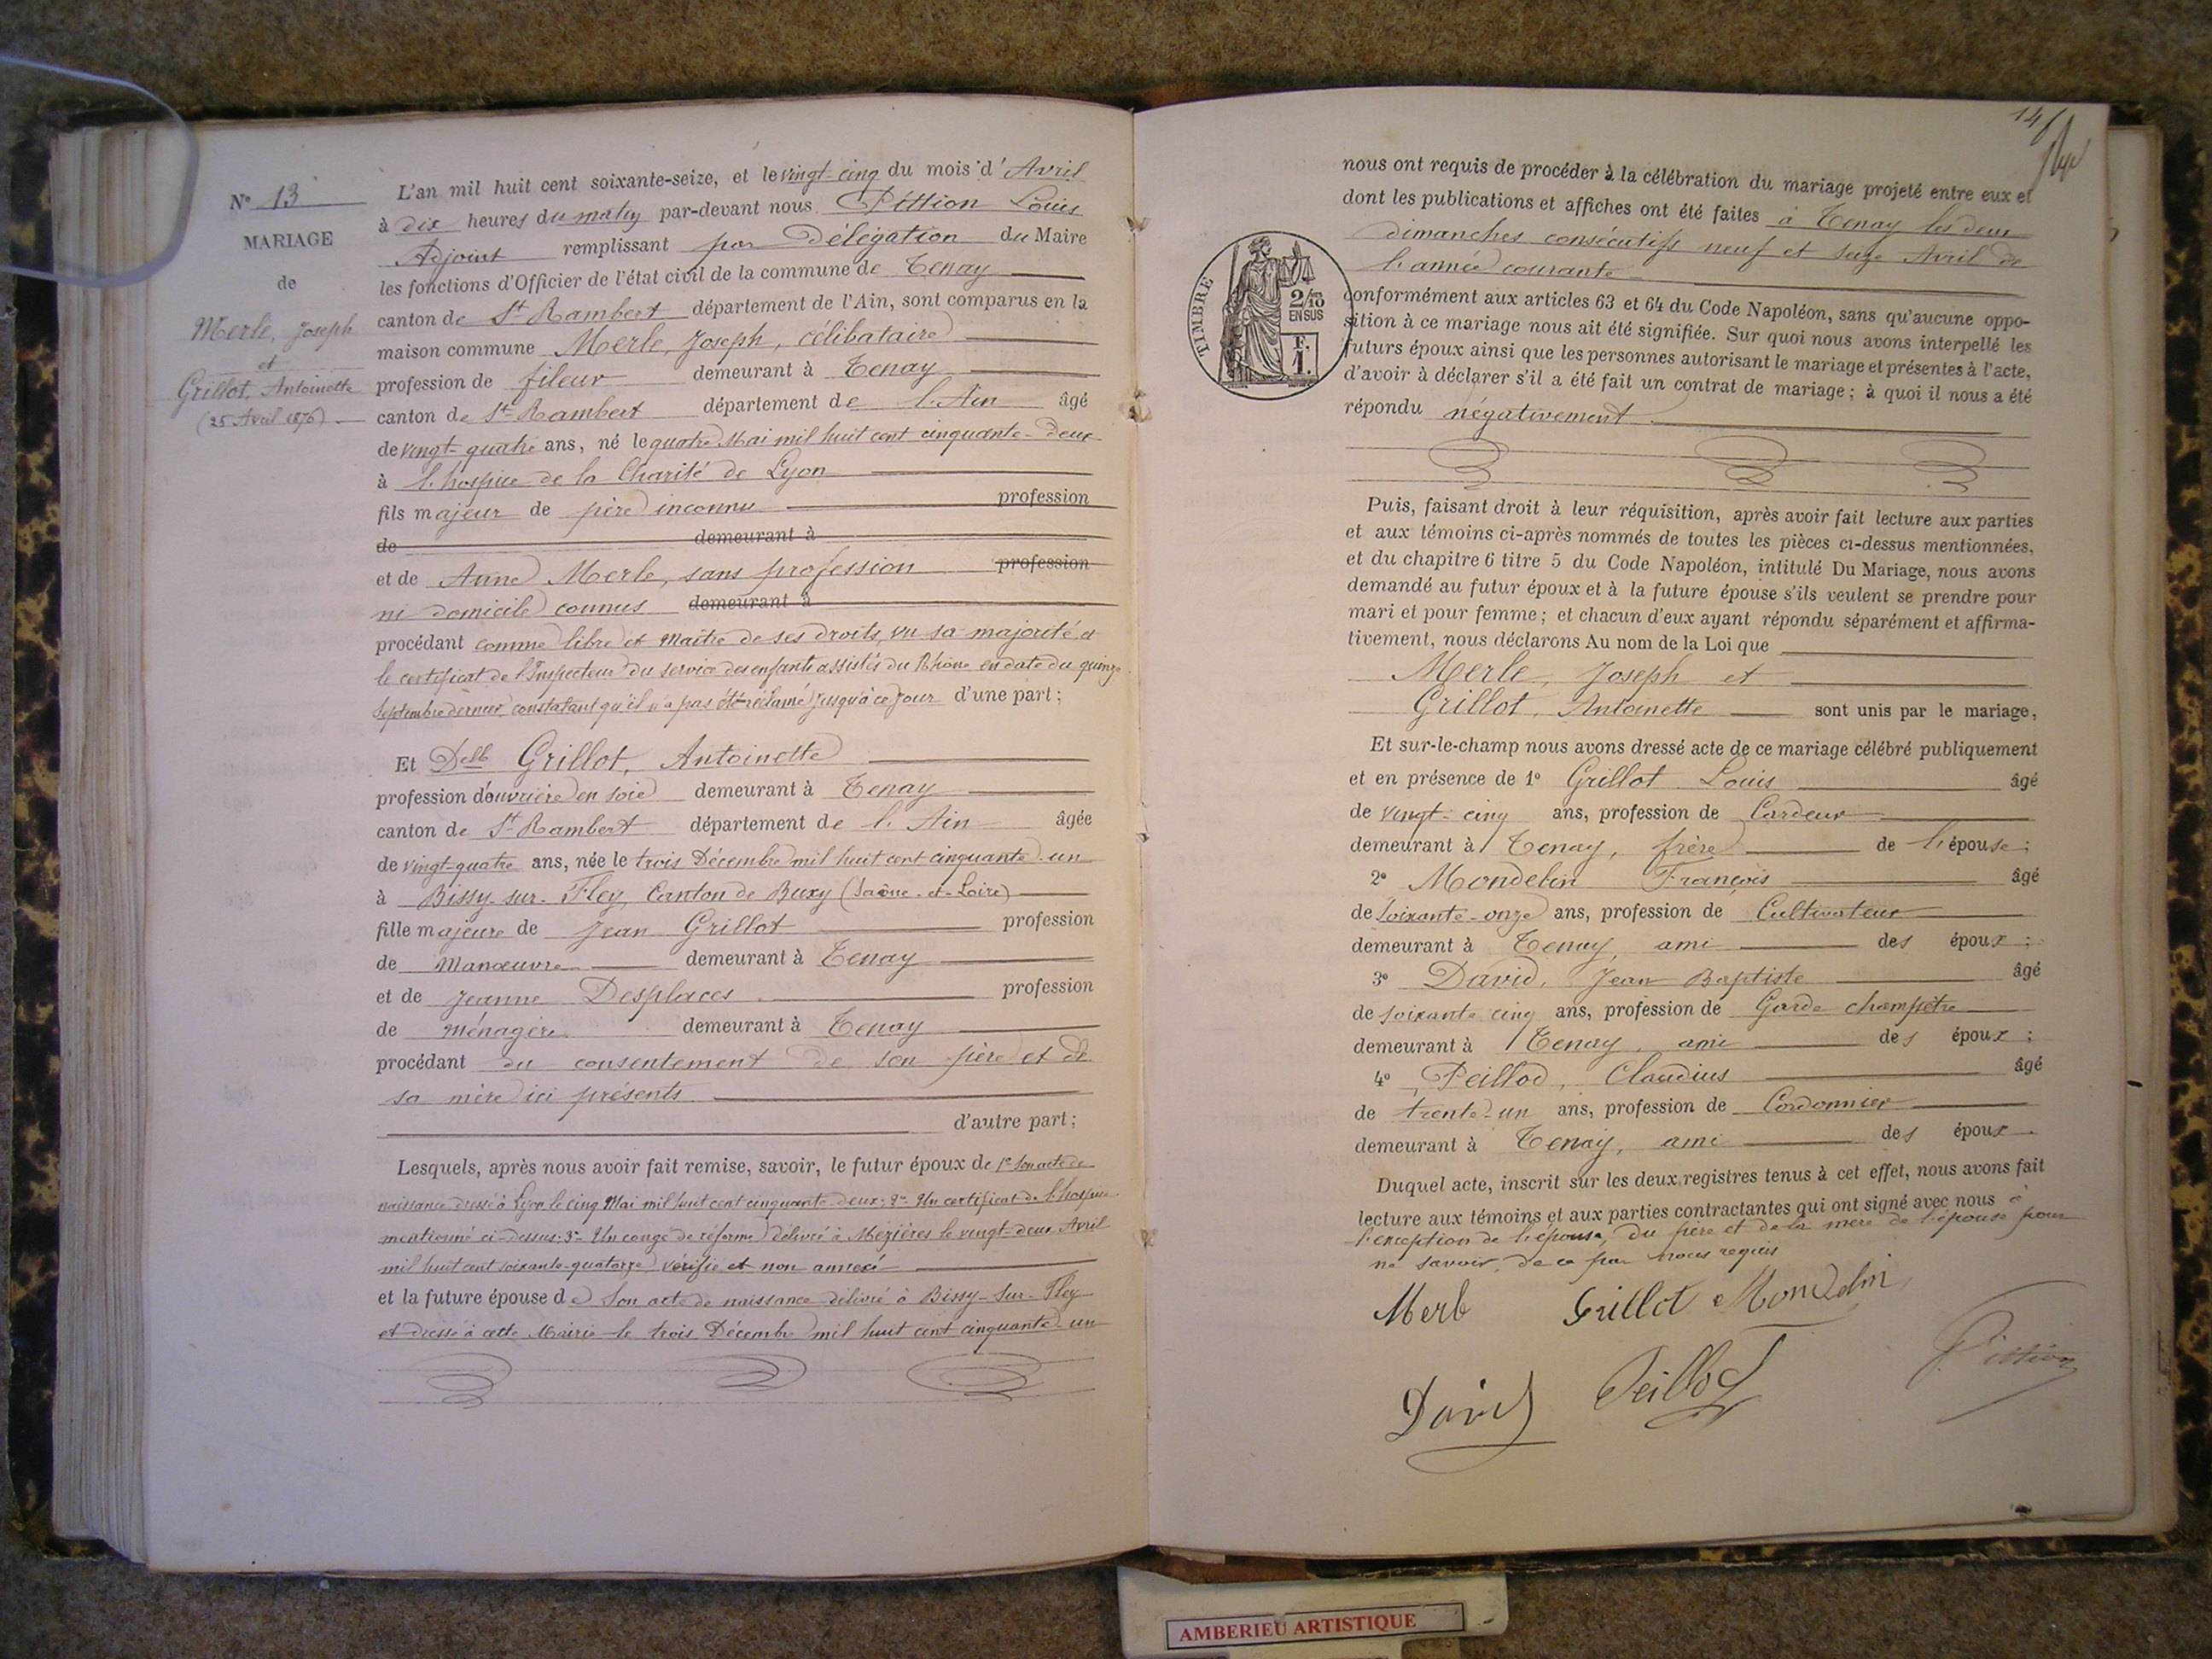 N° 13
MARIAGE
de
Merle, Joseph
et
Grillot, Antoinette
(25 Avril 1876)
L'an mil huit cent soixante-seize, et le vingt-cinq du mois d'Avril
à dix heures du matin par-devant nous Pittion Louis
Adjoint remplissant par Délégation du Maire
les fonctions d'Officier de l'état civil de la commune de Tenay
canton de St Rambert département de l'Ain, sont comparus en la
maison commune Merle, Joseph, célibataire
profession de fileur demeurant à Tenay
canton de St Rambert département de l'Ain âgé
de vingt-quatre ans, né le quatre Mai mil huit cent cinquante-deux
à l'hospice de la Charité de Lyon
fils majeur de père inconnu profession
de demeurant à
et de Anne Merle, sans profession profession
ni domicile connus demeurant à
procédant comme libre et Maître de ses droits, vu sa majorité et
le certificat de l'Inspecteur du service des enfants assistés du Rhône en date du quinze
Septembre dernier, constatant qu'il n'a pas été réclamé jusqu'à ce jour d'une part;
Et Delle Grillot, Antoinette
profession d'ouvrière en soie demeurant à Tenay
canton de St Rambert département de l'Ain âgée
de vingt-quatre ans, née le trois Décembre mil huit cent cinquante-un
à Bissy-sur-Fley, Canton de Buxy (Saône-et-Loire)
fille majeure de Jean Grillot profession
de Manœuvre demeurant à Tenay
et de Jeanne Desplaces profession
de Ménagère demeurant à Tenay
procédant du consentement de son père et de
sa mère ici présents
d'autre part;
Lesquels, après nous avoir fait remise, savoir, le futur époux de 1° Son acte de
naissance dressé à Lyon le cinq Mai mil huit cent cinquante-deux; 2° Un certificat de l'hospice
mentionné ci-dessus; 3° Un congé de réforme délivré à Mézières le vingt-deux Avril
mil huit cent soixante-quatorze vérifié et non annexé
et la future épouse de Son acte de naissance délivré à Bissy-Sur-Fley
et dressé à cette Mairie le trois Décembre mil huit cent cinquante-un
14
nous ont requis de procéder à la célébration du mariage projeté entre eux et
dont les publications et affiches ont été faites à Tenay les deux
dimanches consécutifs neuf et seize Avril de
l'année courante
TIMBRE
2/10
EN SUS
F.
1.
conformément aux articles 63 et 64 du Code Napoléon, sans qu'aucune oppo-
sition à ce mariage nous ait été signifiée. Sur quoi nous avons interpellé les
futurs époux ainsi que les personnes autorisant le mariage et présentes à l'acte,
d'avoir à déclarer s'il a été fait un contrat de mariage; à quoi il nous a été
répondu négativement
Puis, faisant droit à leur réquisition, après avoir fait lecture aux parties
et aux témoins ci-après nommés de toutes les pièces ci-dessus mentionnées,
et du chapitre 6 titre 5 du Code Napoléon, intitulé Du Mariage, nous avons
demandé au futur époux et à la future épouse s'ils veulent se prendre pour
mari et pour femme; et chacun d'eux ayant répondu séparément et affirma-
tivement, nous déclarons Au nom de la Loi que
Merle, Joseph et
Grillot, Antoinette sont unis par le mariage,
Et sur-le-champ nous avons dressé acte de ce mariage célébré publiquement
et en présence de 1° Grillot Louis âgé
de vingt-cinq ans, profession de Cardeur
demeurant à Tenay, frère de l'épouse;
2° Mondelin François âgé
de soixante-onze ans, profession de Cultivateur
demeurant à Tenay, ami des époux;
3° David, Jean Baptiste âgé
de soixante cinq ans, profession de Garde champêtre
demeurant à Tenay, ami des époux;
4° Peillod, Claudius âgé
de trente-un ans, profession de Cordonnier
demeurant à Tenay, ami des époux.
Duquel acte, inscrit sur les deux registres tenus à cet effet, nous avons fait
lecture aux témoins et aux parties contractantes qui ont signé avec nous à
l'exception de l'épouse, du père et de la mère de l'épouse pour
ne savoir, de ce par nous requis
Merle Grillot Mondelin
David Peillod Pittion
AMBERIEU ARTISTIQUE